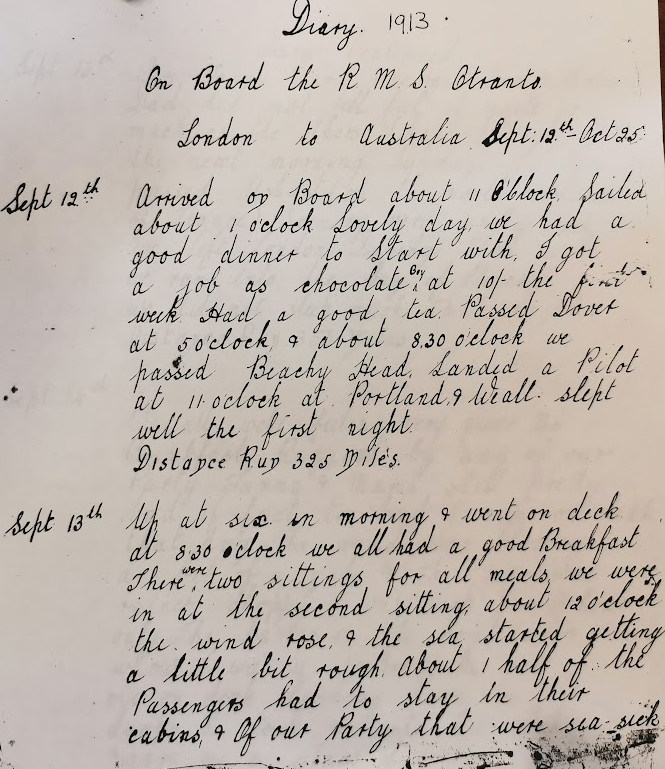 Diary. 1913.
On Board the R M S. Otranto.
London to Australia Sept: 12th - Oct 25.
Sept 12th Arrived on Board about 11 O'clock, Sailed
about 1 o'clock Lovely day, we had a
good dinner to start with, I got
a job as chocolate Boy at 10/- the first
week. Had a good tea. Passed Dover
at 5 o'clock, & about 8.30 o'clock we
passed Beachy Head, Landed a Pilot
at 11 oclock at Portland, & We all slept
well the first night.
Distance Run 325 Miles.
Sept 13th Up at six in morning & went on deck
at 8.30 oclock we all had a good Breakfast
There were two sittings for all meals, we were
in at the second sitting, about 12 o'clock
the wind rose, & the sea started getting
a little bit rough. About 1 half of the
Passengers had to stay in their
cabins, & Of our Party that were sea-sick